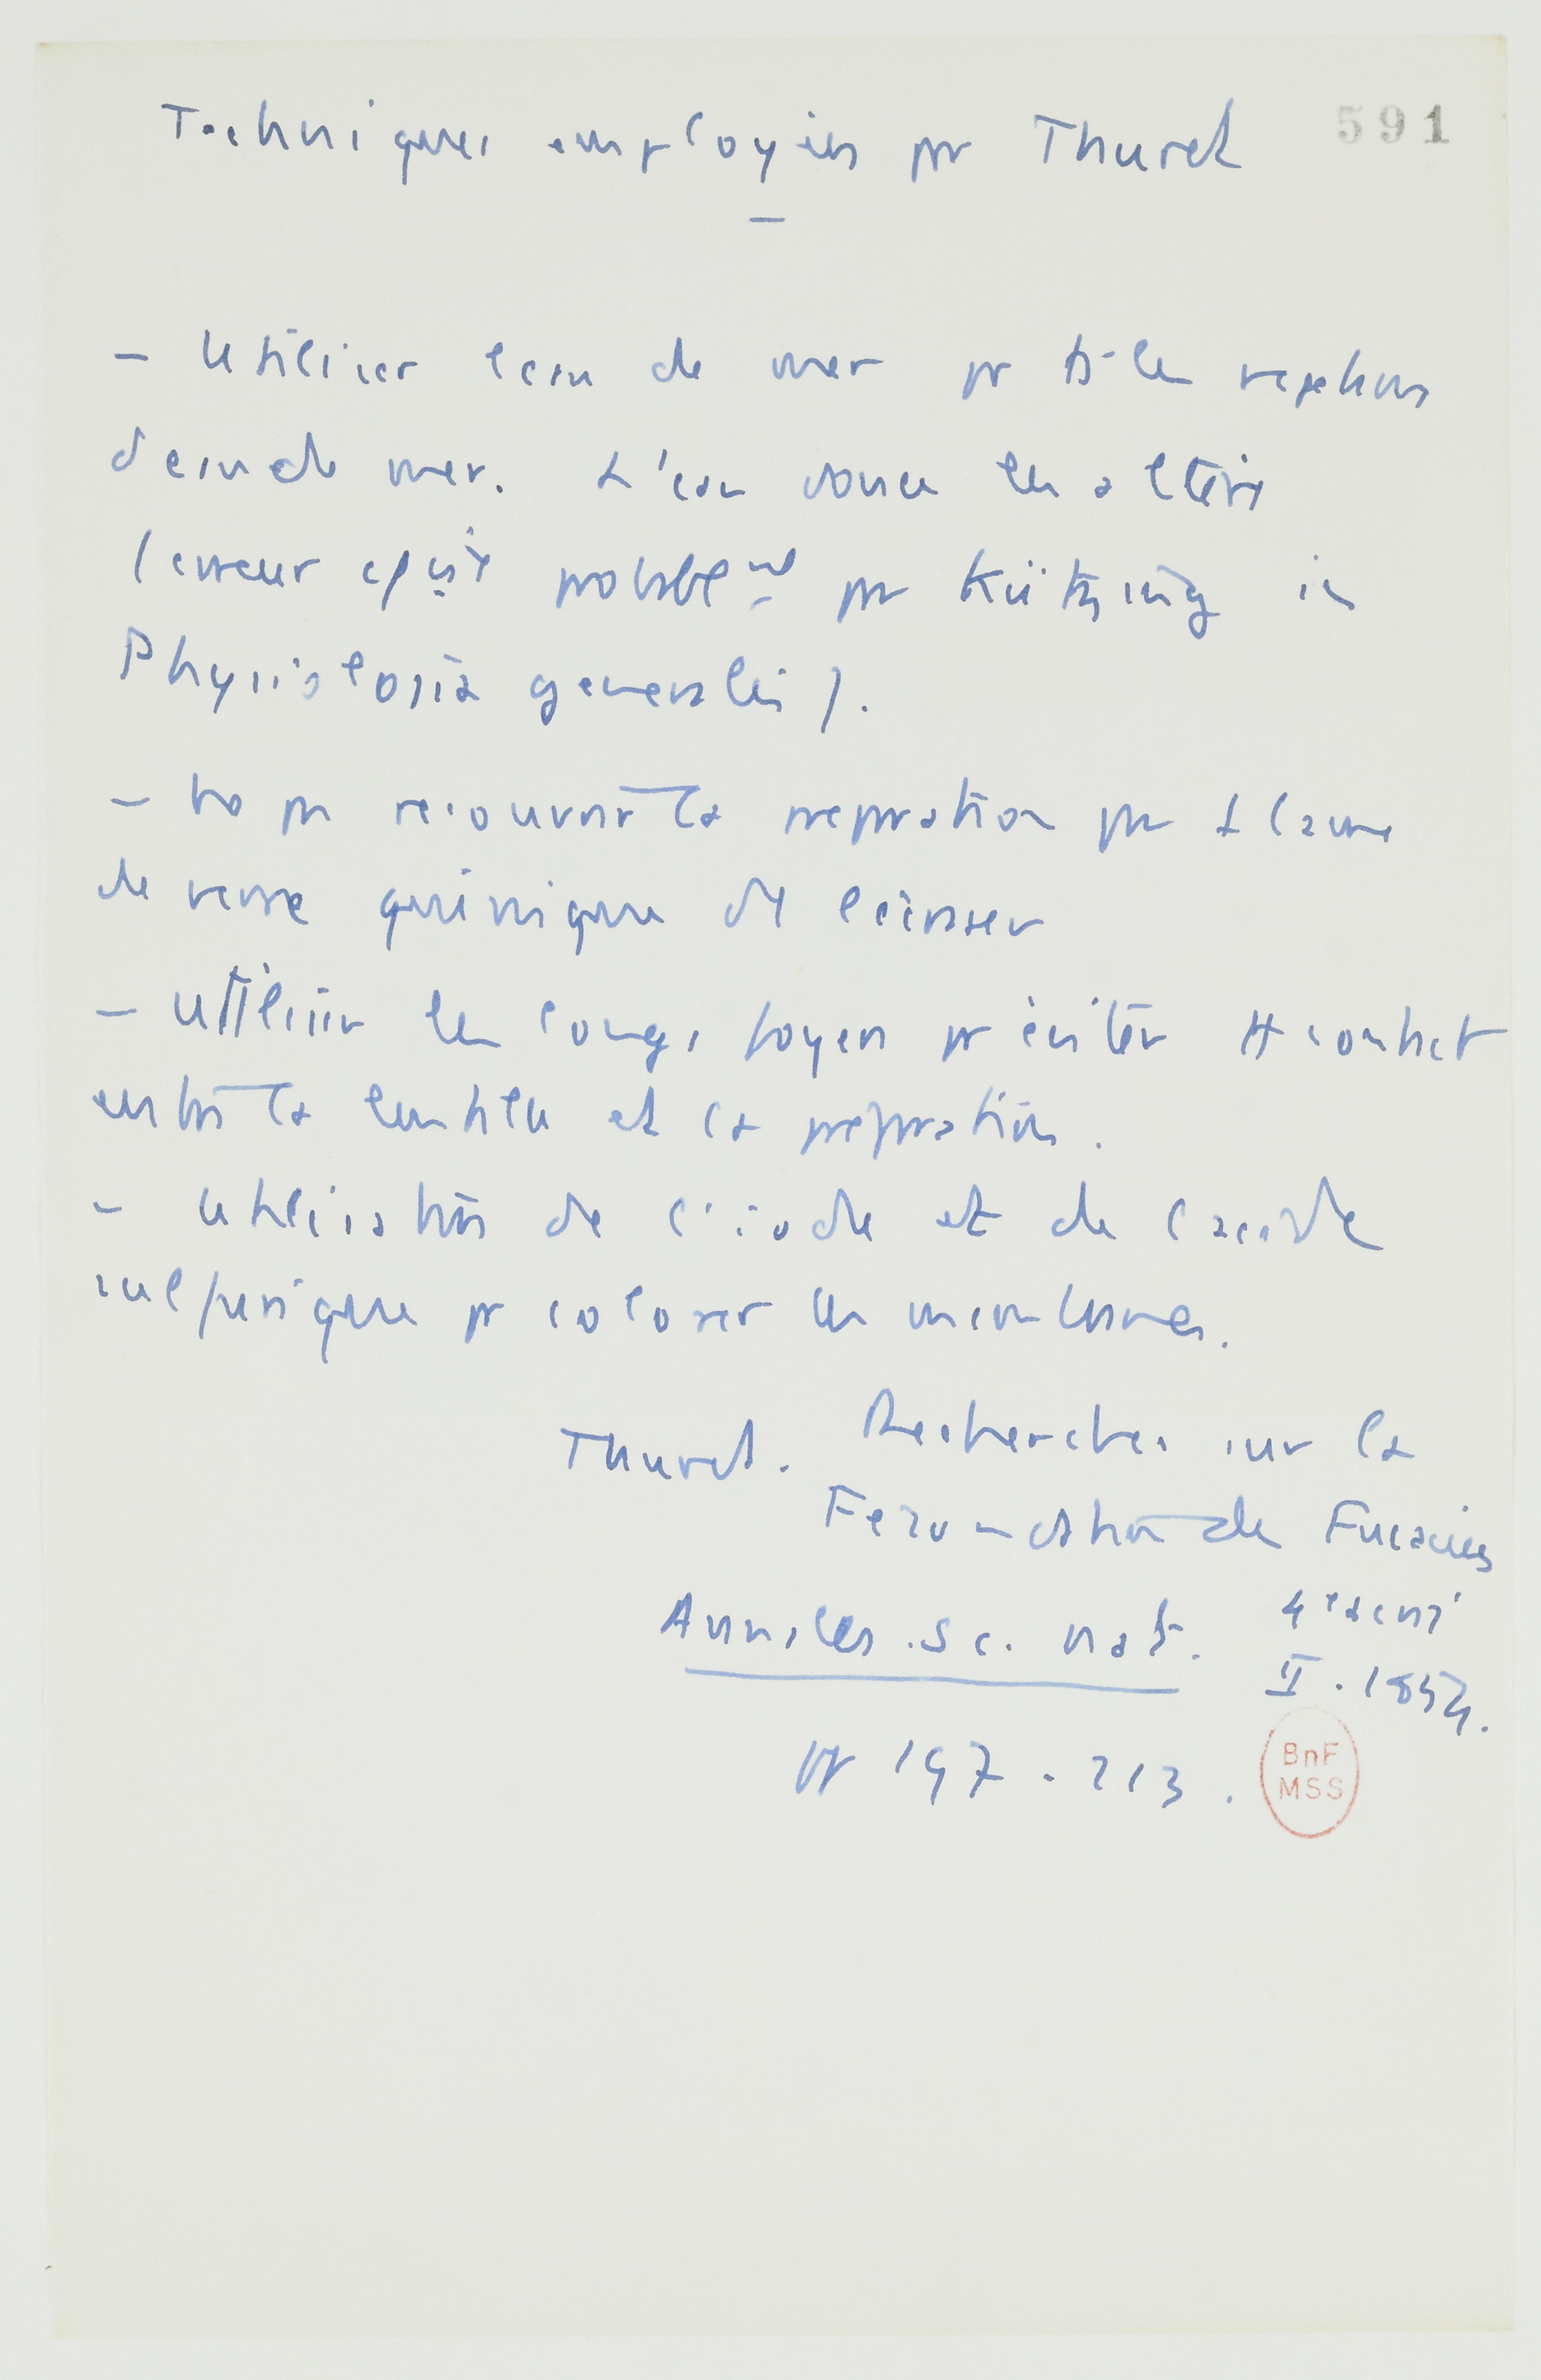 Techniques employées pr Thuret 591
- Utiliser l'eau de mer pr ts les vegetaux
d'eau de mer. L'eau douce les altère
(erreur probablemt pr Kützing in
Physiologia generalis).
- Ne pas recouvrir la preparation pr 1 lame
de verre qui risque de l'écraser
- Utiliser les longs foyers pr éviter tt contact
entre la lentille et la preparation.
- Utilisation de l'iode et de l'acide
sulfurique pr colorer les membranes.
Thuret. Recherches sur la
Fecondation des Fucacées
Annales. Sc. nat. 4e
II. 1854.
pp 197-213.
BnF
MSS